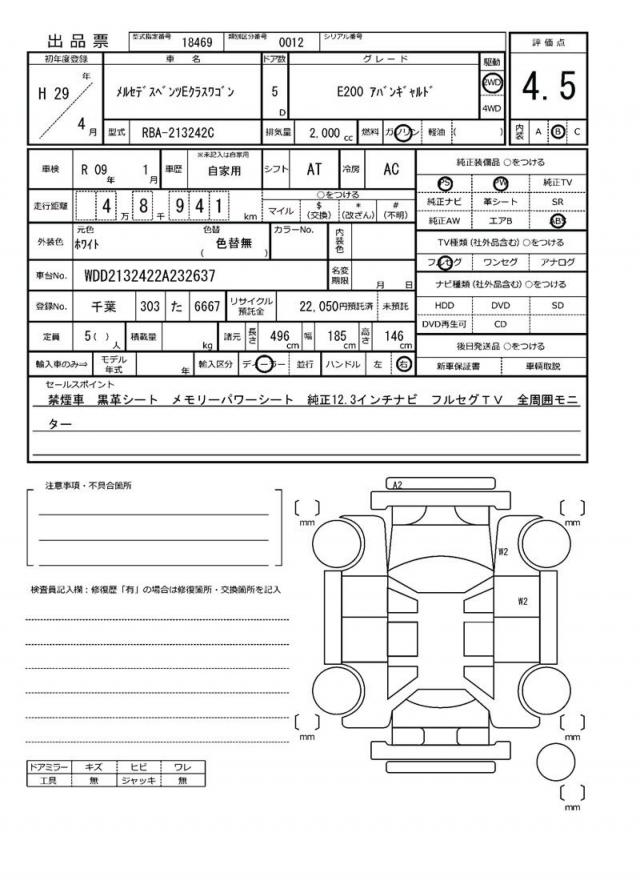 出品票 型式指定番号 18469 類別区分番号 0012 シリアル番号
初年度登録 車 名 ドア数 グレード 駆動 評価点
H 29 年 4 月 ﾒﾙｾﾃﾞｽﾍﾞﾝﾂEｸﾗｽﾜｺﾞﾝ 5 D E200 ｱﾊﾞﾝｷﾞｬﾙﾄﾞ 2WD 4WD 4.5
型式 RBA-213242C 排気量 2,000 cc 燃料 ガソリン 軽油 ( ) 内装 A B C
車検 R 09 年 1 月 車歴 ※未記入は自家用 自家用 シフト AT 冷房 AC 純正装備品 ○をつける
PS PW 純正TV
走行距離 4 万 8 千 9 4 1 km ○をつける
マイル $ (交換) * (改ざん) # (不明)
純正ナビ 革シート SR
純正AW エアB ABS
外装色 元色 ﾎﾜｲﾄ 色替 ( 色替無 ) カラーNo. 内装色
TV種類(社外品含む) ○をつける
フルセグ ワンセグ アナログ
車台No. WDD2132422A232637 名変期限 月 日
ナビ種類(社外品含む) ○をつける
登録No. 千葉 303 た 6667 リサイクル預託金 22,050円預託済 未預託
HDD DVD SD
DVD再生可 CD
定員 5( ) 人 積載量 kg 諸元 長さ 496 cm 幅 185 cm 高さ 146 cm
後日発送品 ○をつける
輸入車のみ⇒ モデル年式 年 輸入区分 ディーラー 並行 ハンドル 左 右
新車保証書 車輌取説
セールスポイント
禁煙車 黒革シート メモリーパワーシート 純正12.3インチナビ フルセグTV 全周囲モニ
ター
注意事項・不具合箇所
A2
mm mm
W2
W2
検査員記入欄：修復歴「有」の場合は修復箇所・交換箇所を記入
mm mm
ドアミラー キズ ヒビ ワレ
工具 無 ジャッキ 無
mm